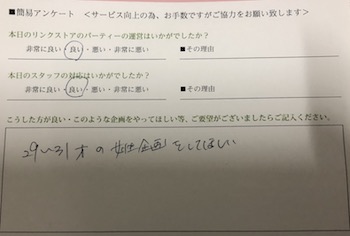 ■簡易アンケート ＜サービス向上の為、お手数ですがご協力をお願い致します＞
本日のリンクストアのパーティーの運営はいかがでしたか？
非常に良い・良い・悪い・非常に悪い ■その理由
本日のスタッフの対応はいかがでしたか？
非常に良い・良い・悪い・非常に悪い ■その理由
こうした方が良い・このような企画をやってほしい等、ご要望がございましたらご記入ください。
29〜31才の女性企画をしてほしい